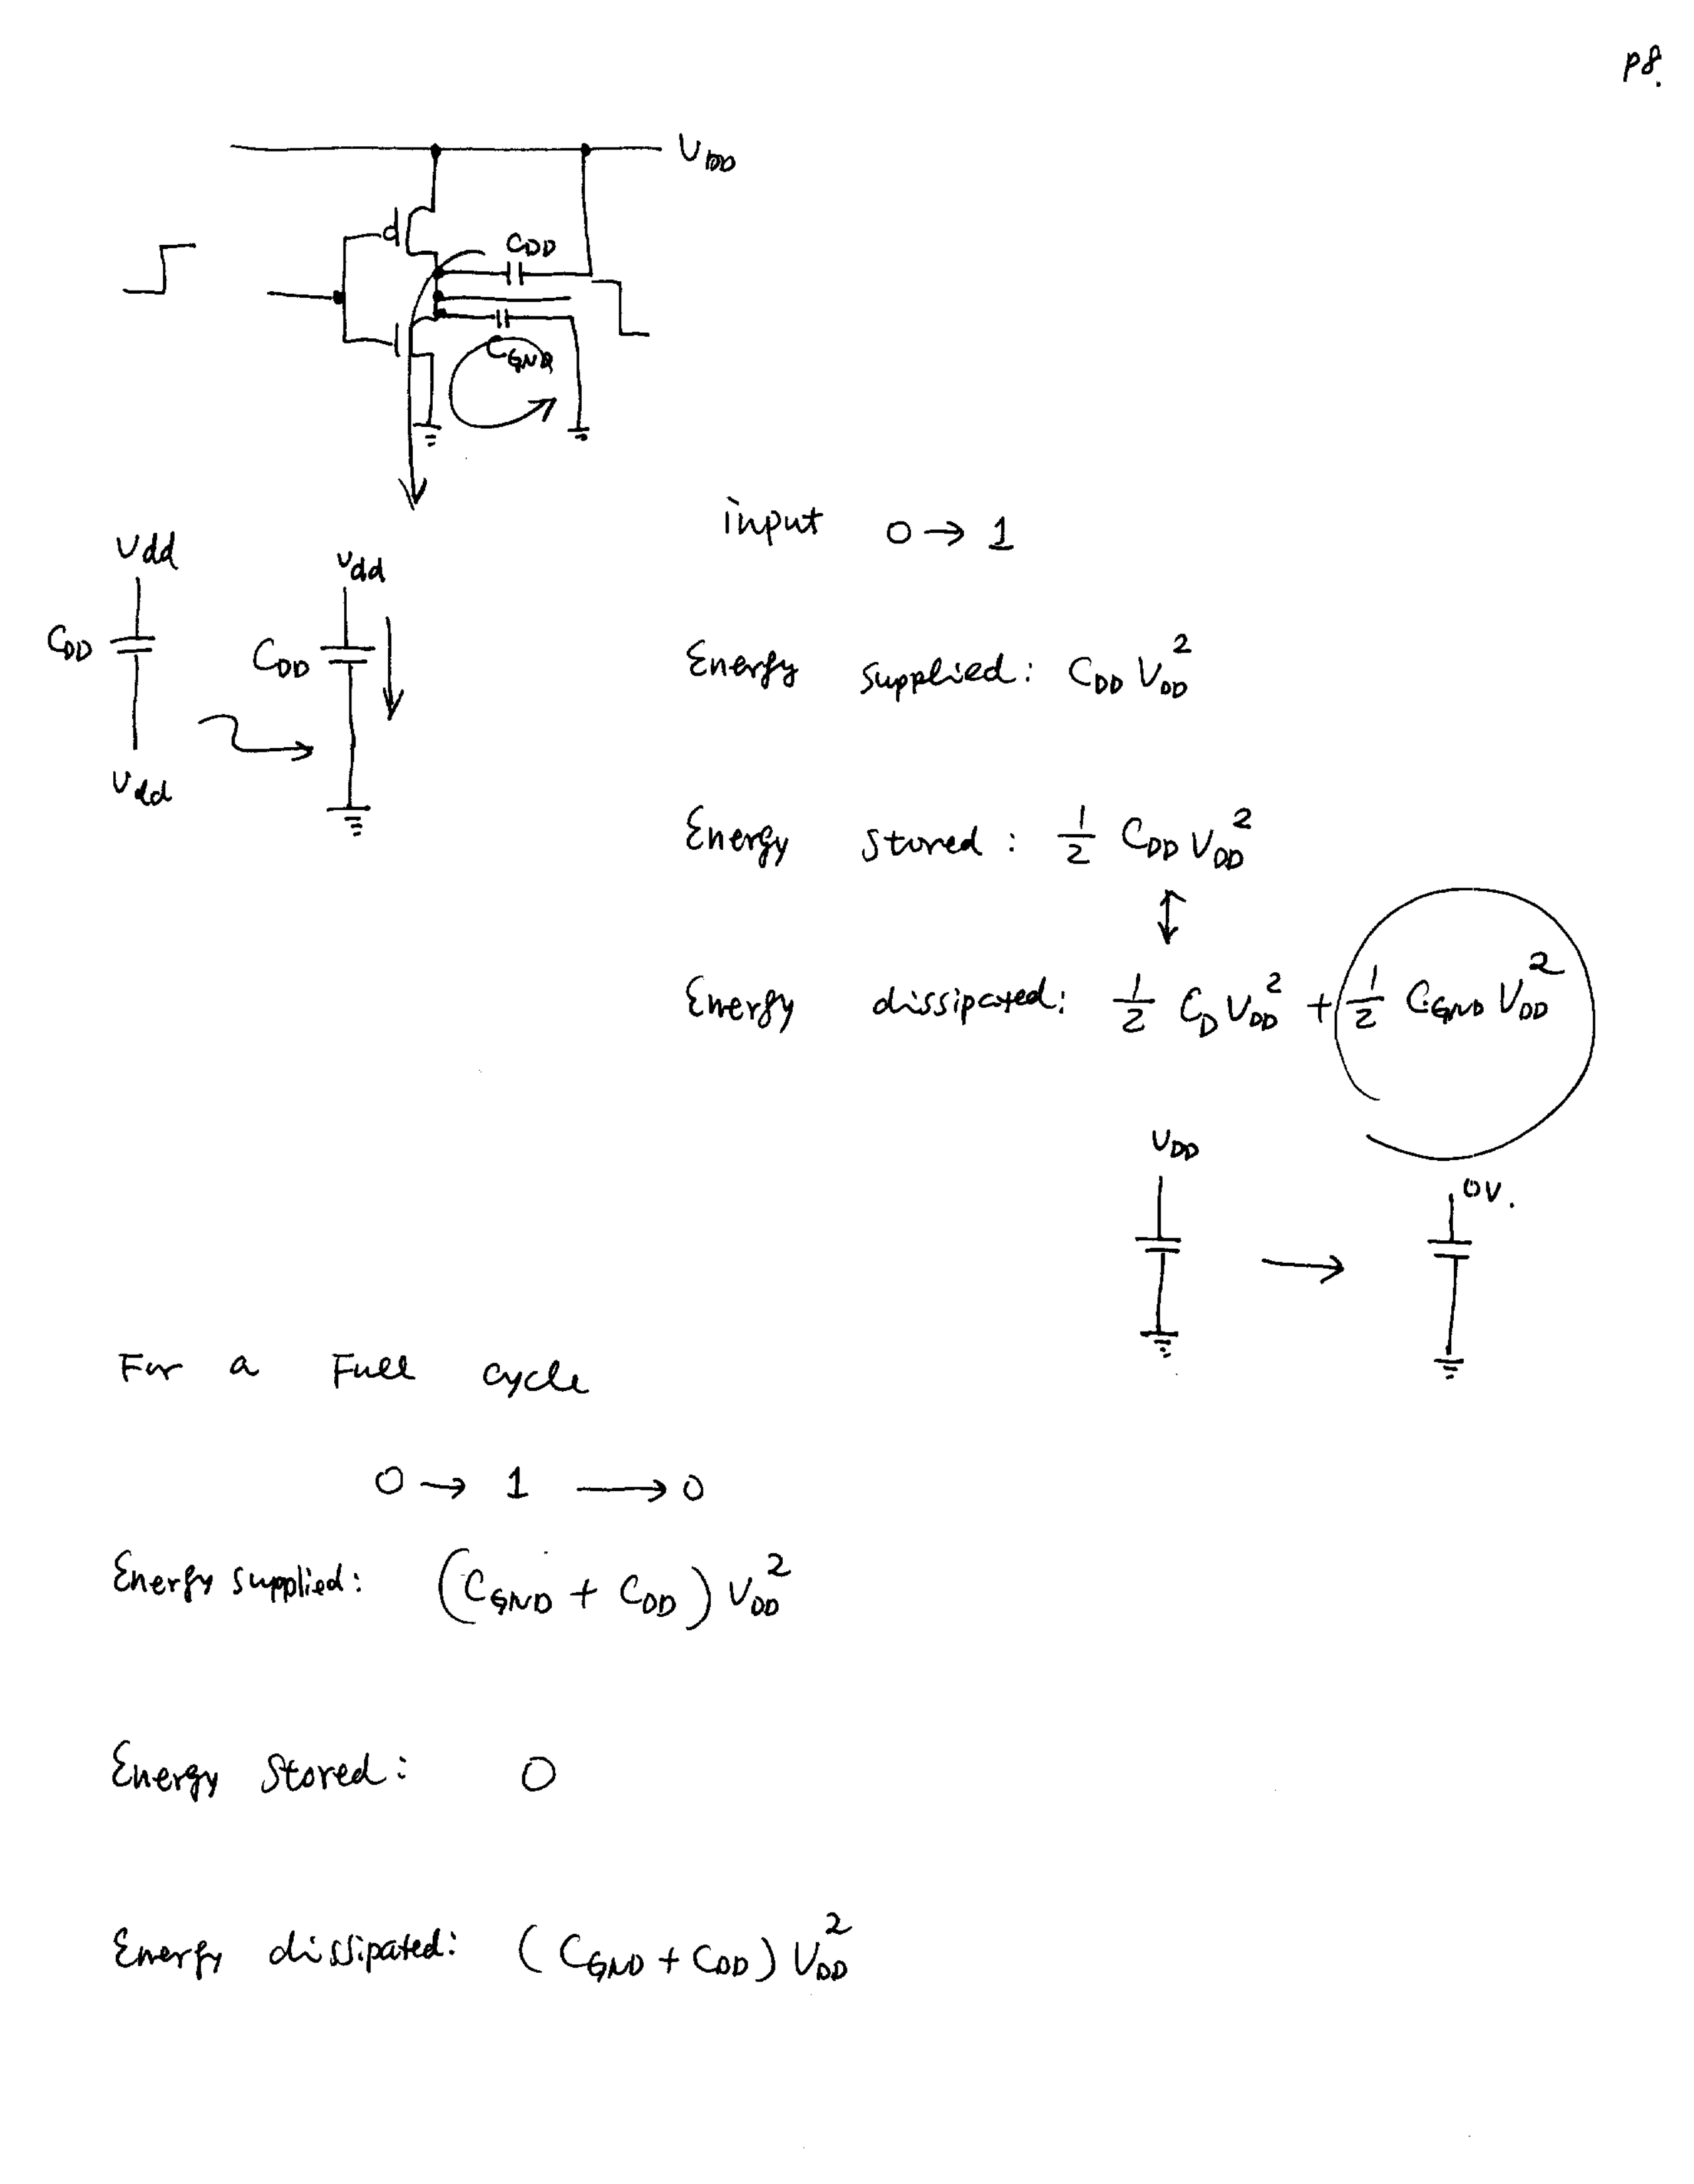 p8.
VDD
CDD
CGND
input 0 → 1
Vdd
Vdd
CDD
CDD
Vdd
Energy supplied: CDD VDD²
Energy stored: 1/2 CDD VDD²
↕
Energy dissipated: 1/2 CD VDD² + 1/2 CGND VDD²
VDD
0V.
For a Full cycle
0 → 1 → 0
Energy supplied: (CGND + CDD) VDD²
Energy Stored: 0
Energy dissipated: (CGND + CDD) VDD²